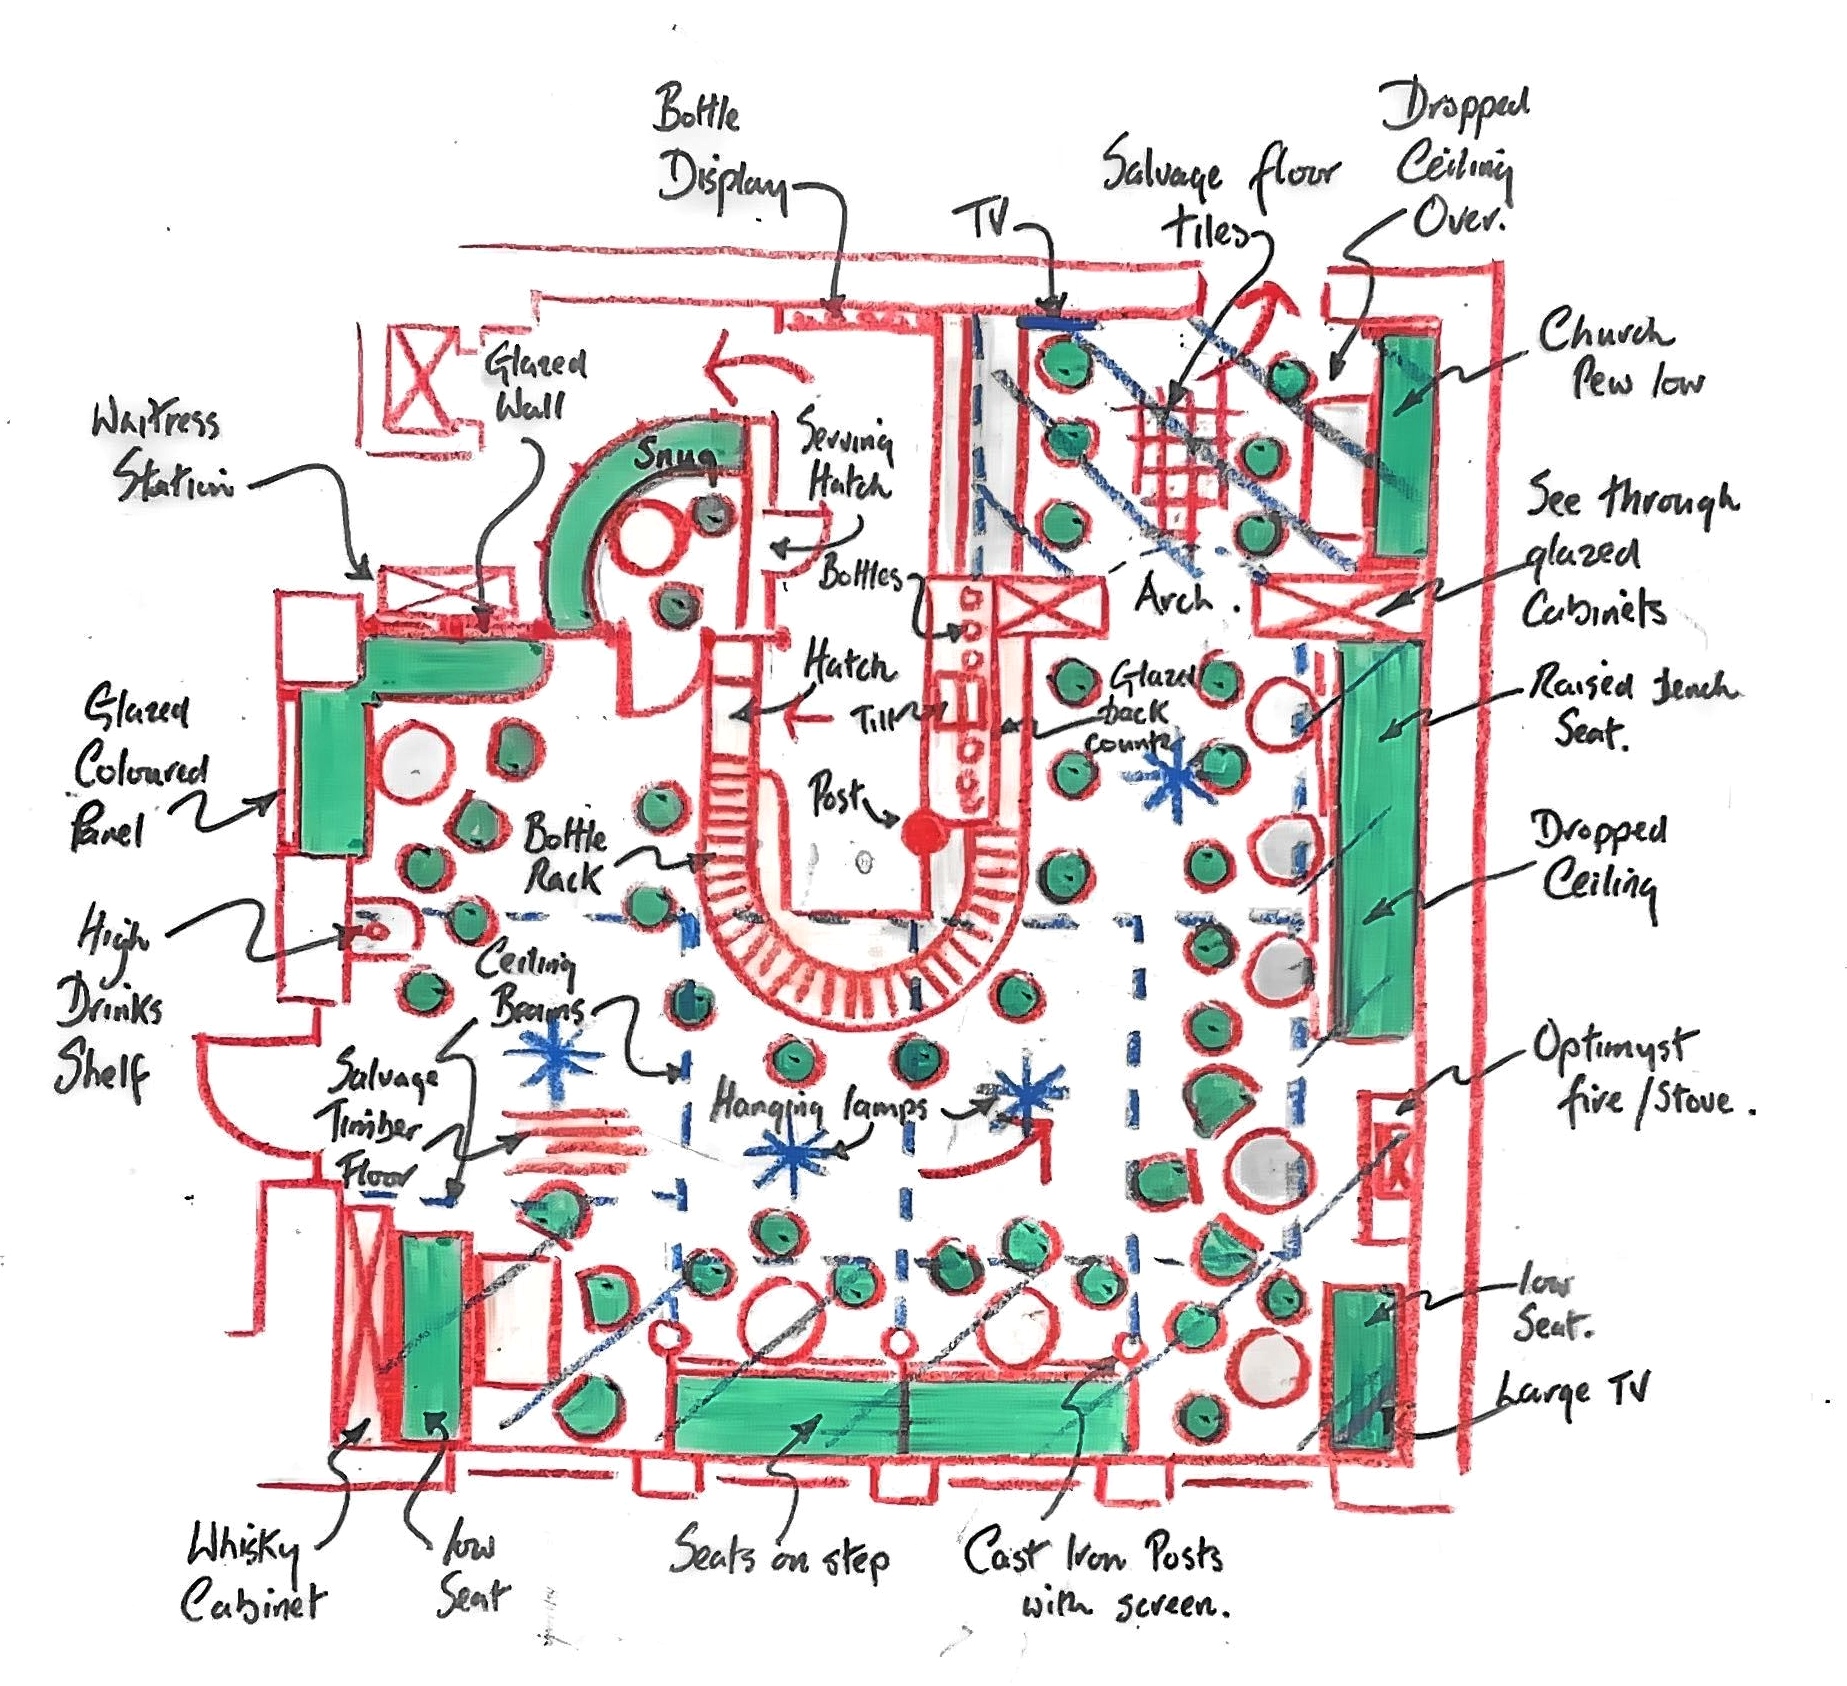 Bottle
Display
TV
Salvage floor
tiles
Dropped
Ceiling
Over.
Church
Pew low
Glazed
Wall
Waitress
Station
Snug
Serving
Hatch
See through
glazed
Cabinets
Bottles
Arch.
Hatch
Till
Glazed
back
counter
Raised bench
Seat.
Glazed
Coloured
Panel
Post
Bottle
Rack
Dropped
Ceiling
High
Drinks
Shelf
Ceiling
Beams
Salvage
Timber
Floor
Hanging lamps
Optimyst
fire/Stove.
low
Seat.
Large TV
Whisky
Cabinet
low
Seat
Seats on step
Cast Iron Posts
with screen.